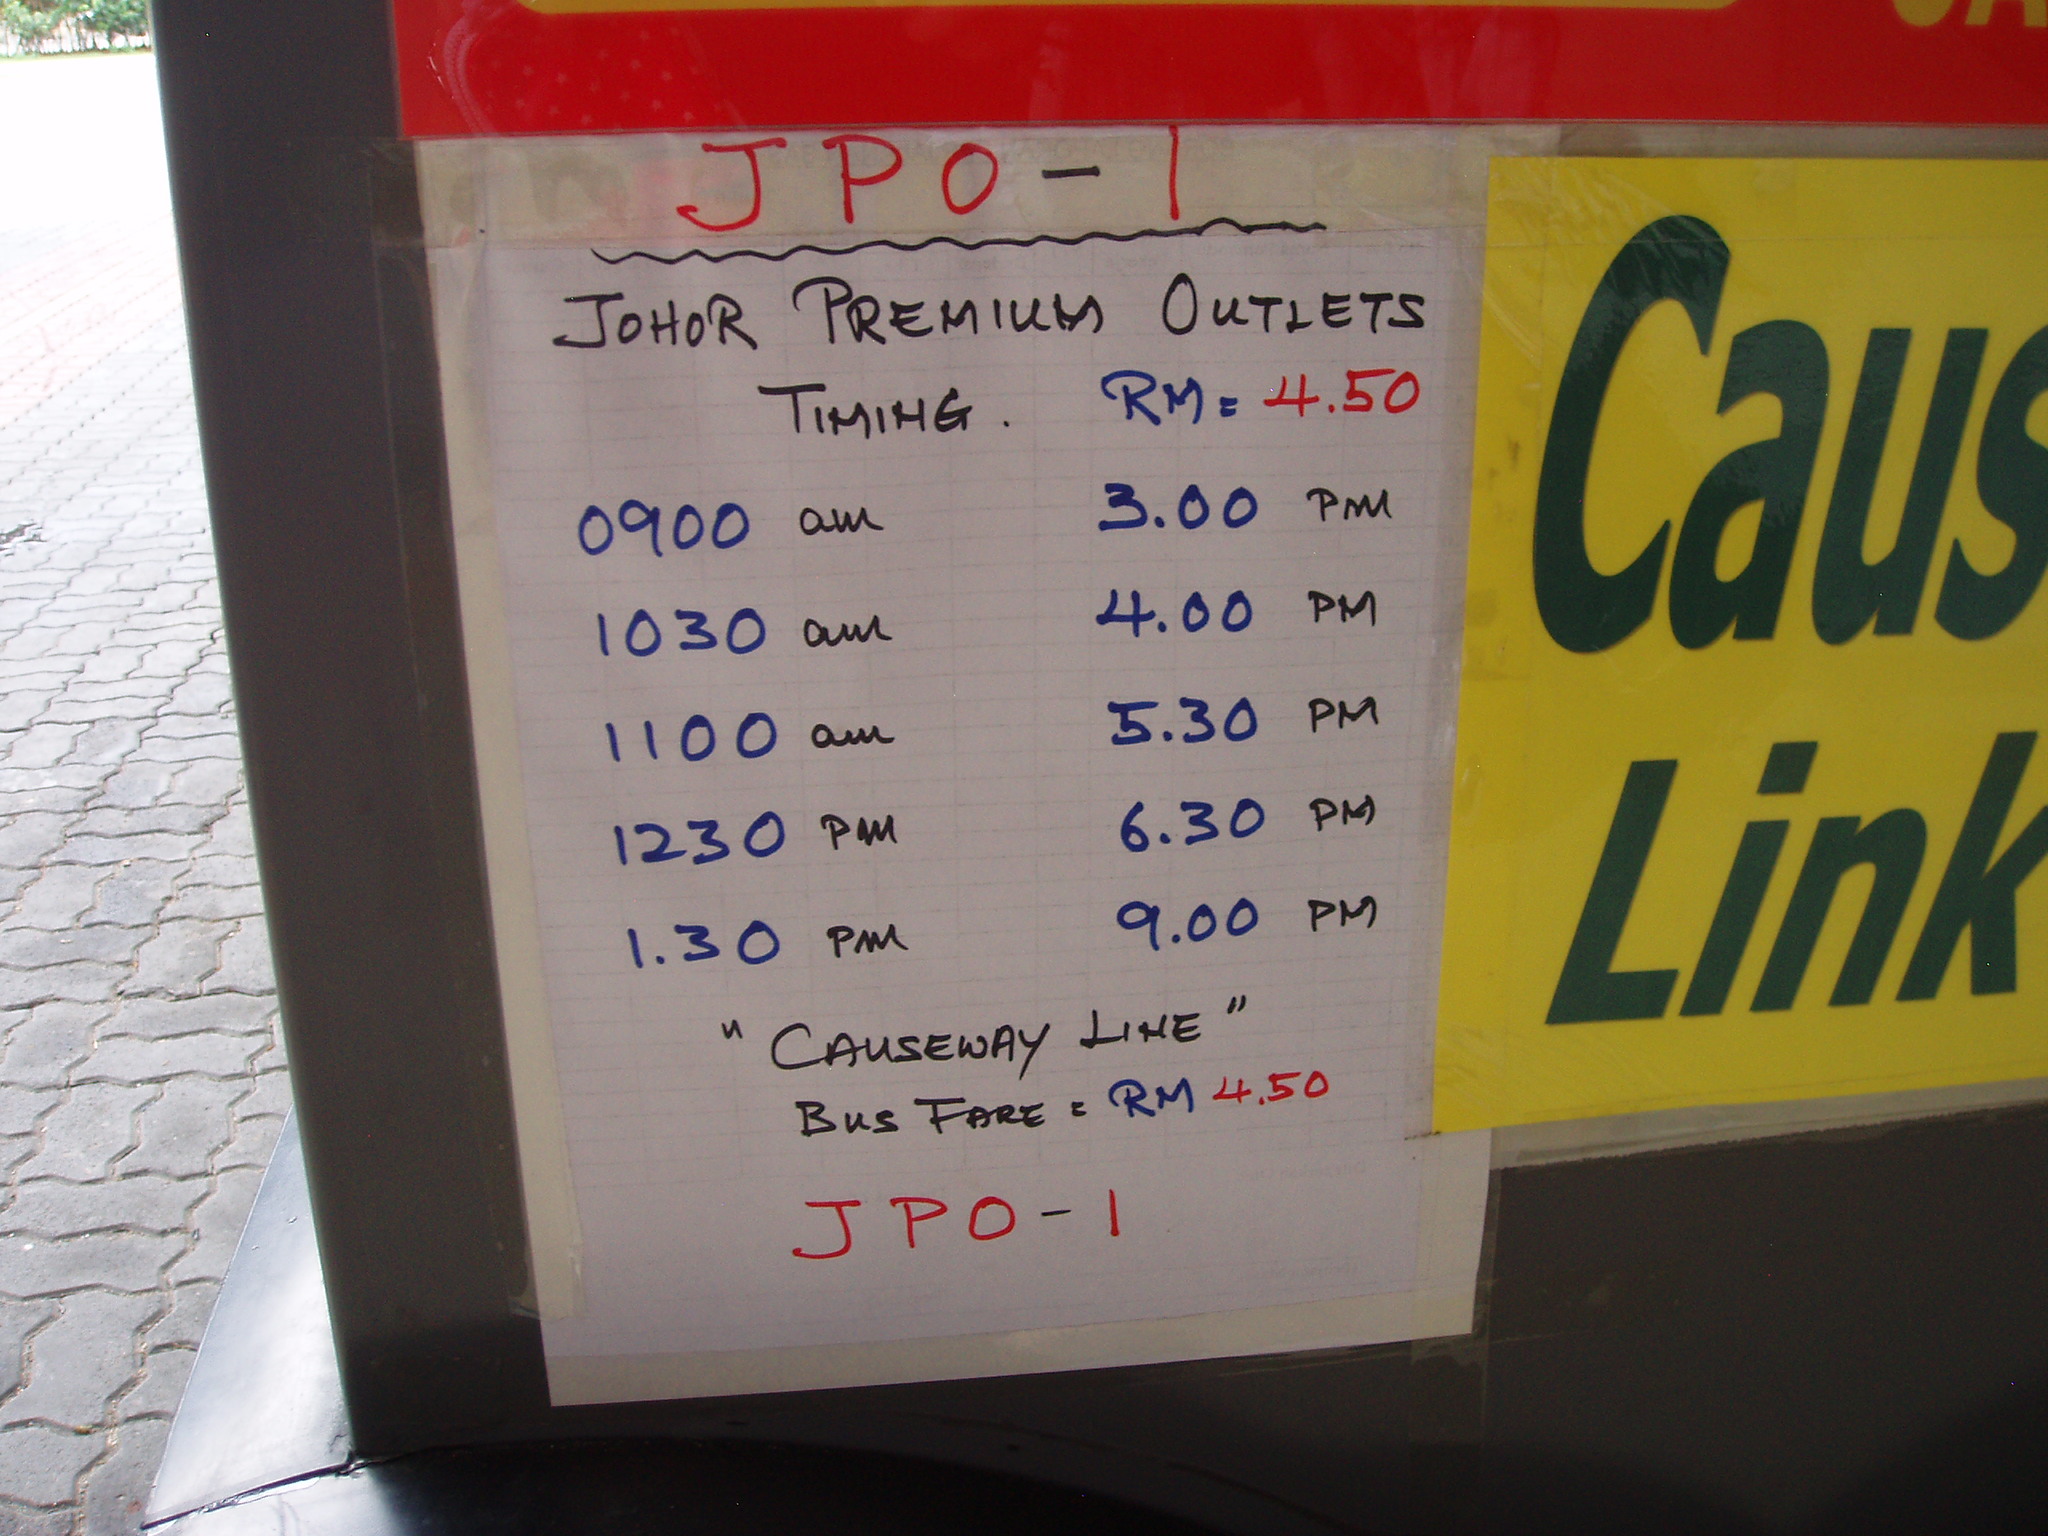 JPO-1
JOHOR PREMIUM OUTLETS
TIMING. RM= 4.50
0900 am 3.00 PM
1030 am 4.00 PM
1100 am 5.30 PM
1230 PM 6.30 PM
1.30 PM 9.00 PM
"CAUSEWAY LINE"
BUS FARE = RM 4.50
JPO-1
Caus
Link